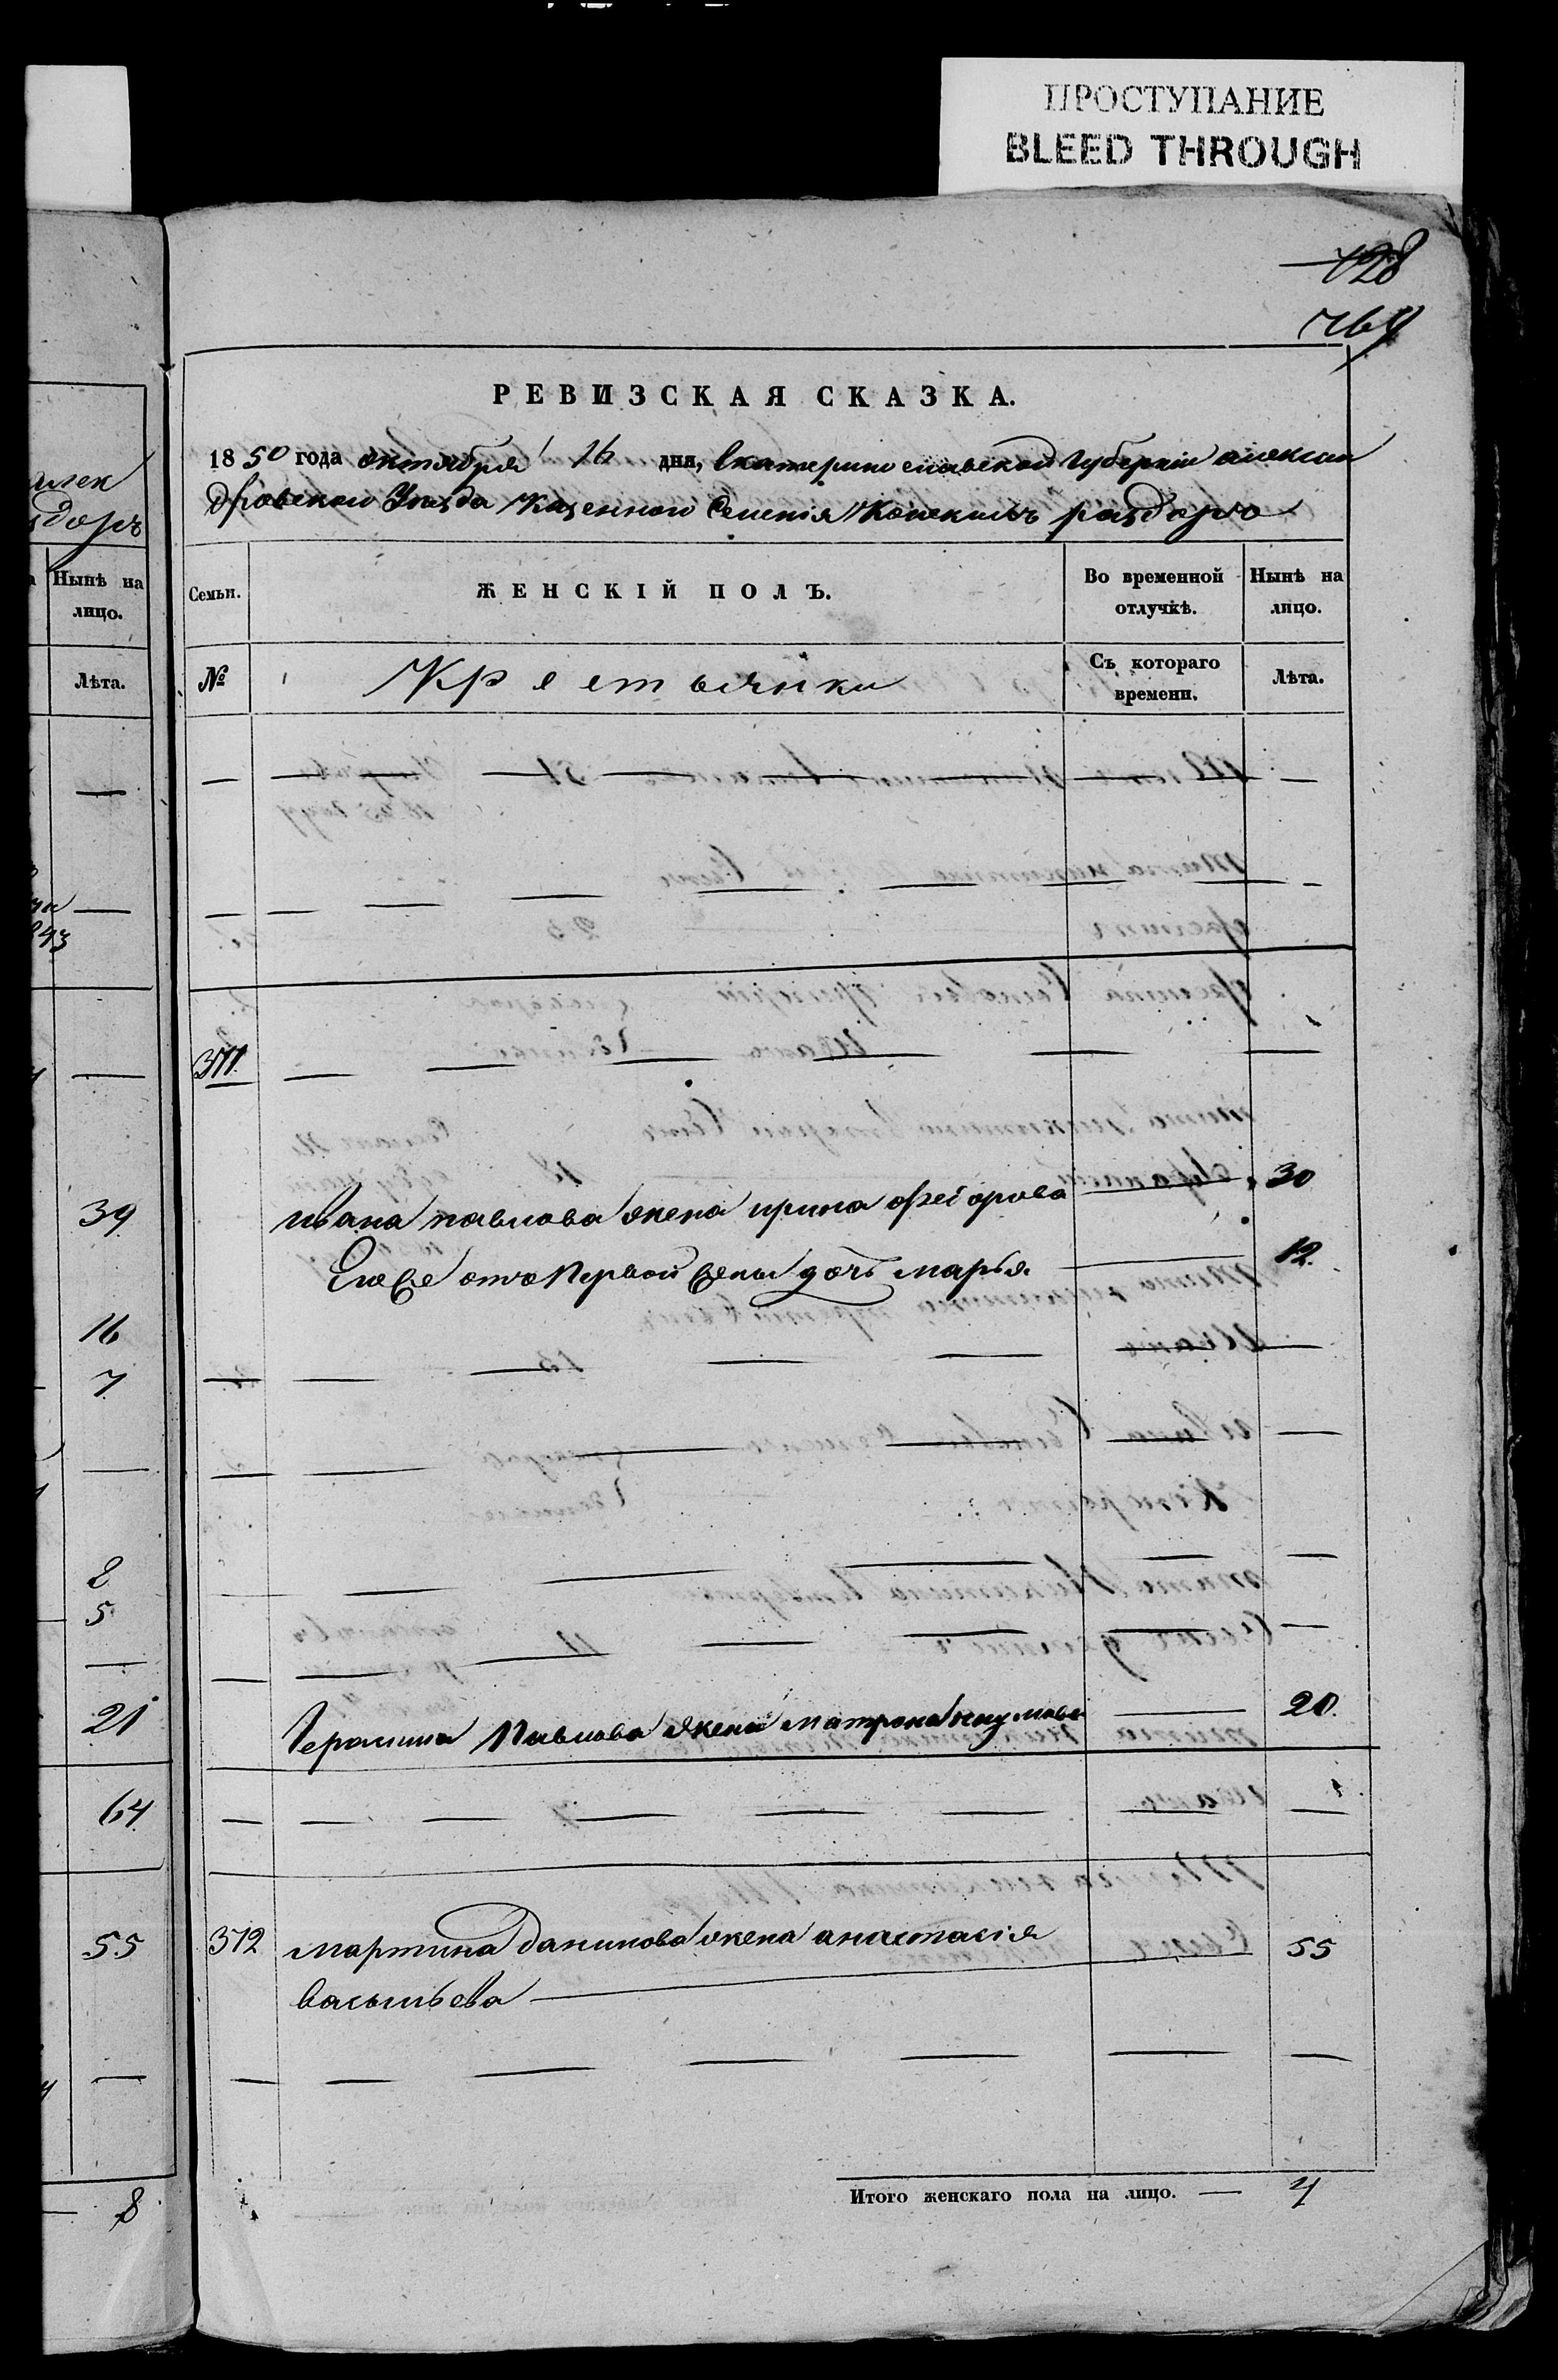 ПРОСТУПАНИЕ
BLEED THROUGH
128
764
РЕВИЗСКАЯ СКАЗКА.
1850 года октября 16 дня, Екатеринославской Губернiи алексан
дровскаго Уезда Казенного Селенiя
Семьи.
ЖЕНСКІЙ ПОЛЪ.
Во временной отлучкѣ.
Нынѣ на лицо.
№
Крестьянки
Съ котораго времени.
Лѣта.
311
ивана павлова жена ирина федорова 30
Его же отъ Первой жены дочь марья 12
Герасима Павлова жена матрона наумова 20.
312 мартина данилова жена анастасiя 55
васильева
Итого женскаго пола на лицо. — 4
алек
здоръ
Нынѣ на
лицо.
Лѣта.
843
39
16
7
8
5
21
64
55
8